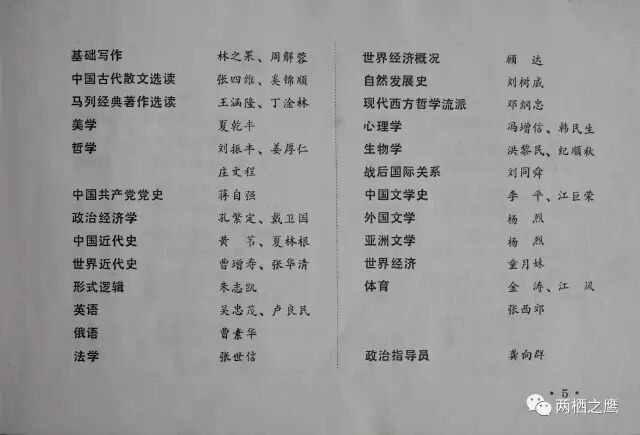 基础写作 林之果、周解蓉
中国古代散文选读 张四维、奚锦顺
马列经典著作选读 王涵隆、丁淦林
美学 夏乾丰
哲学 刘振丰、姜厚仁
庄文程
中国共产党党史 蒋自强
政治经济学 孔繁定、戴卫国
中国近代史 黄 苇、夏林根
世界近代史 曹增寿、张华清
形式逻辑 朱志凯
英语 吴忠茂、卢良民
俄语 曹素华
法学 张世信
世界经济概况 顾 达
自然发展史 刘树成
现代西方哲学流派 邓纲忠
心理学 冯增信、韩民生
生物学 洪黎民、纪顺秋
战后国际关系 刘同舜
中国文学史 李 平、江巨荣
外国文学 杨 烈
亚洲文学 杨 烈
世界经济 童月妹
体育 金 涛、江 风
张西郊
政治指导员 龚向群
· 5 ·
两栖之鹰